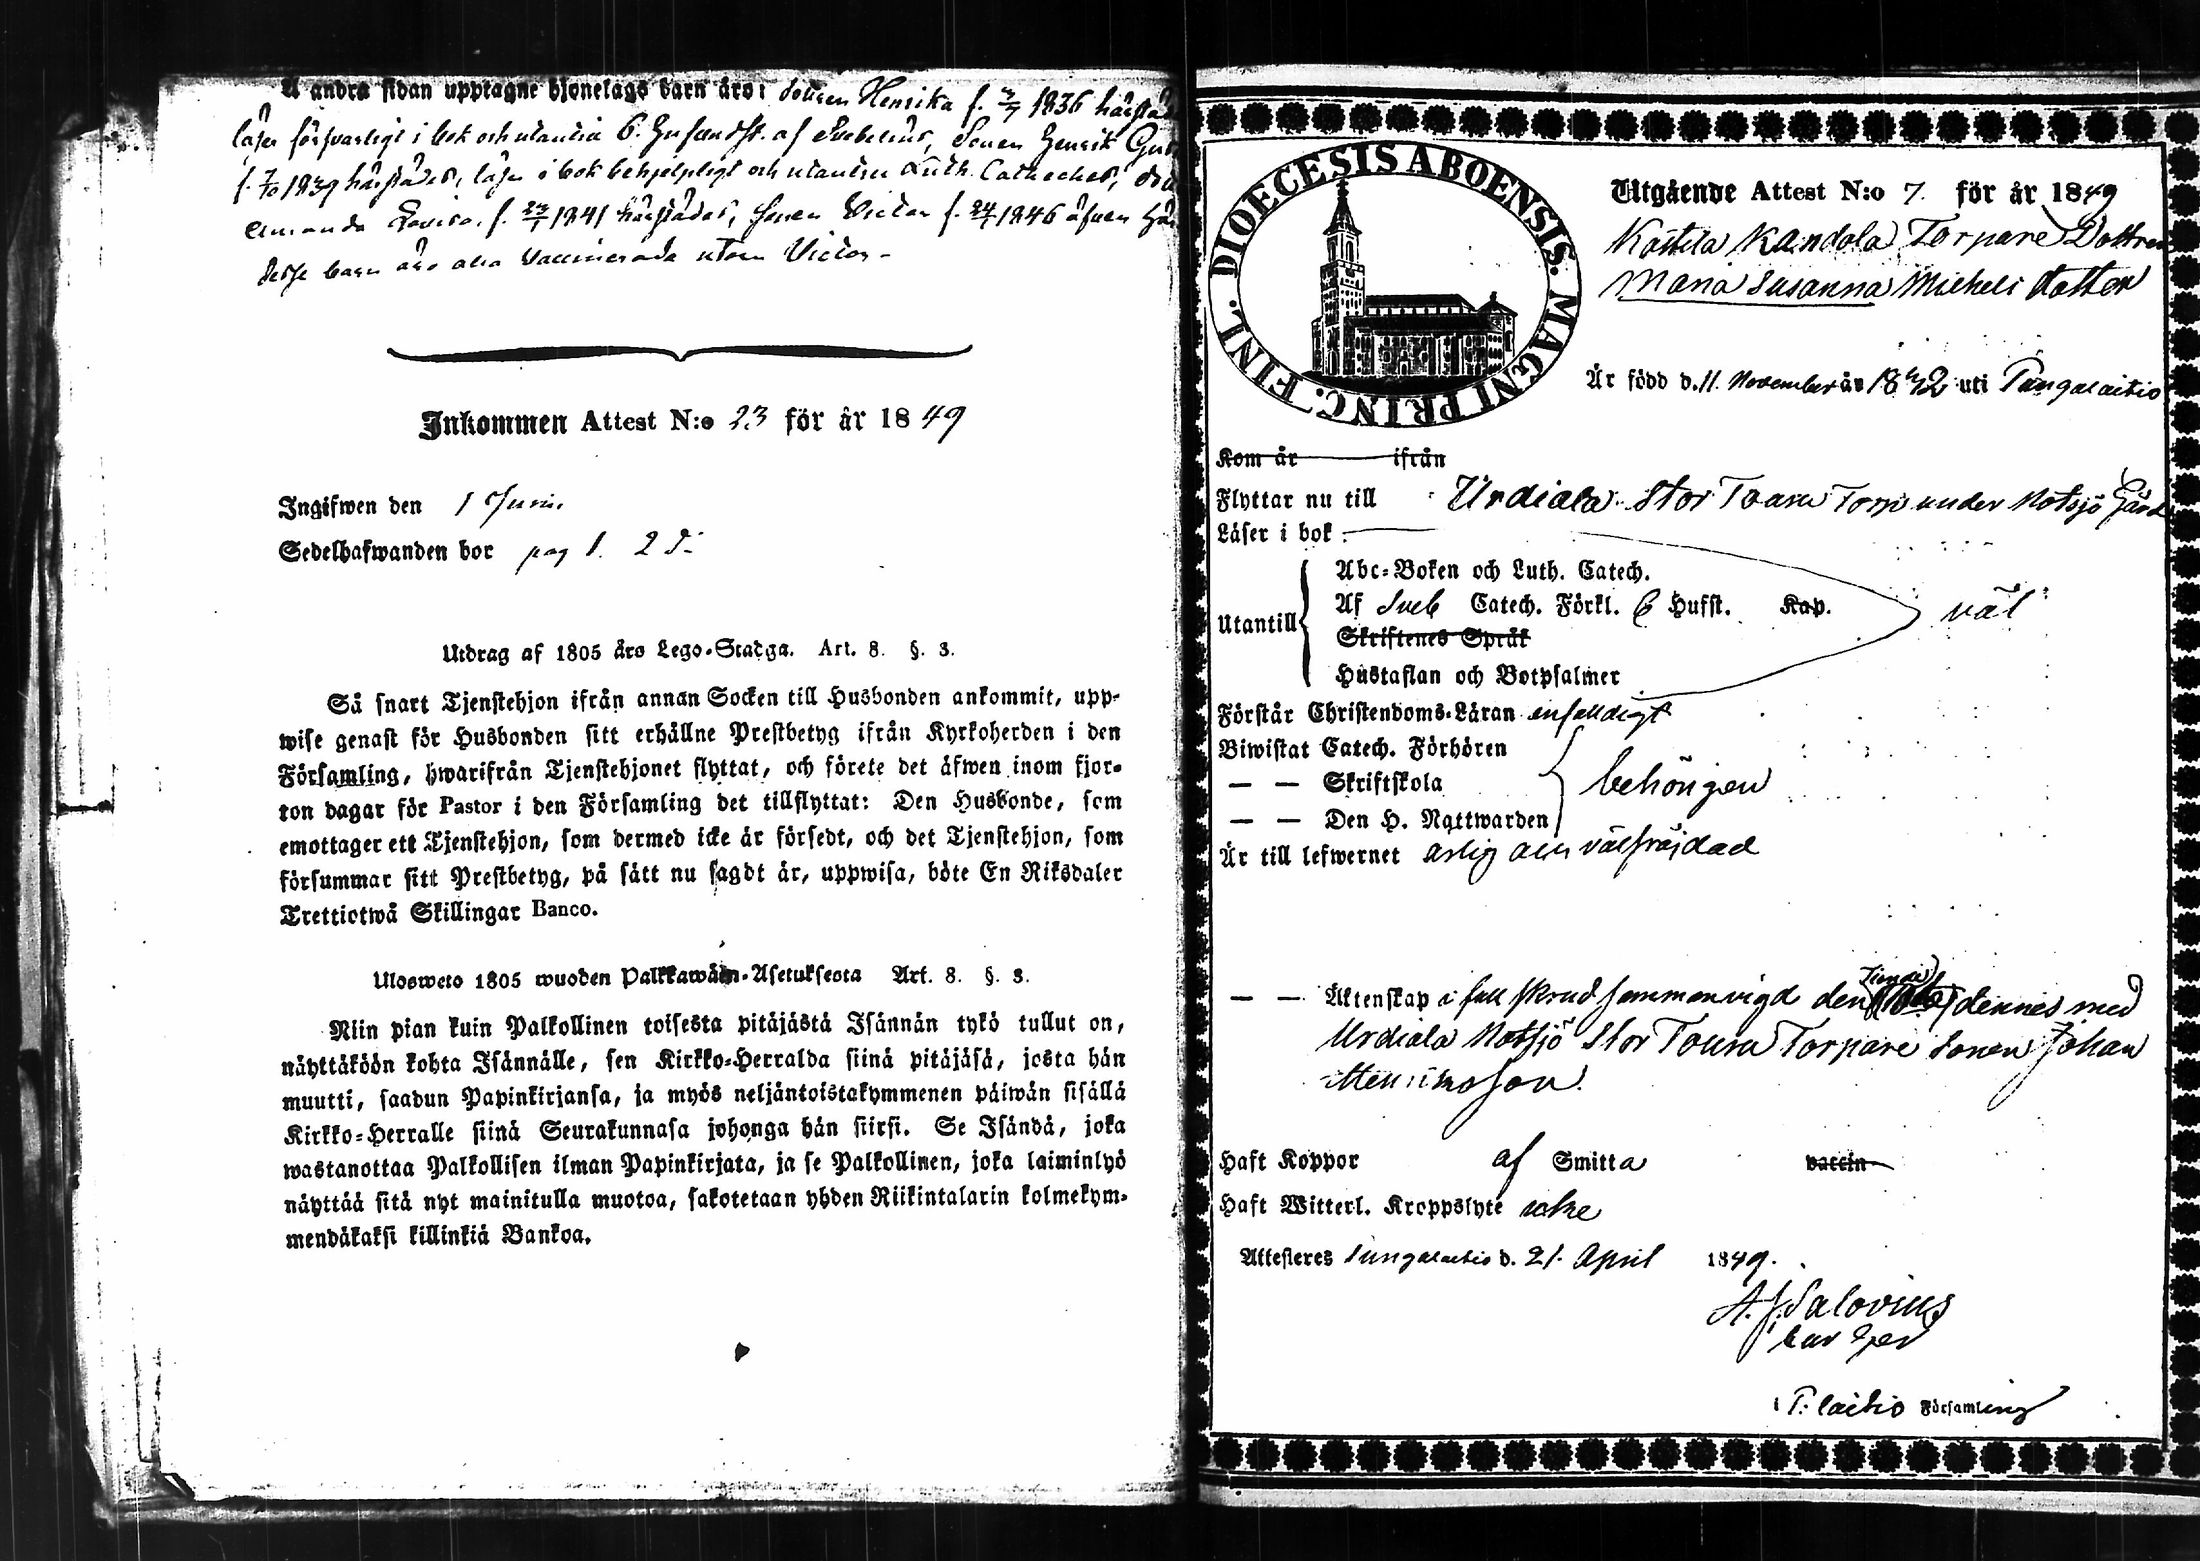 å andra sidan upptagne hjonelags barn äro: dottren Henrika f. 3/7 1836 härstä
läser försvarligt i bok och utantill 6. Hufvudst. af Svebelius, Sonen Henrik Gus
f. 7/10 1839 härstädes, läser i bok behjelpligt och utantill Luth. Catheches,
Amanda Lovisa f. 1841 härstädes, sonen Victor f. 24/ 1846 äfven hä
desse barn äro alla Vaccinerade utom Victor.
Inkommen Attest N:o 23 för år 1849
Ingifwen den 1 Juni.
Sedelhafwanden bor pag 1. 2
Utdrag af 1805 års Lego-Stadga. Art. 8. §. 3.
Så snart Tjenstehjon ifrån annan Socken till Husbonden ankommit, upp-
wise genast för Husbonden sitt erhållne Prestbetyg ifrån Kyrkoherden i den
Församling, hwarifrån Tjenstehjonet flyttat, och förete det äfwen inom fjor-
ton dagar för Pastor i den Församling det tillflyttat: Den Husbonde, som
emottager ett Tjenstehjon, som dermed icke är försedt, och det Tjenstehjon, som
försummar sitt Prestbetyg, på sätt nu sagdt är, uppwisa, böte En Riksdaler
Trettiotwå Skillingar Banco.
Ulosweto 1805 wuoden Palkkawäin-Asetuksesta Art. 8. §. 3.
Niin pian kuin Palkollinen toisesta pitäjästä Isännän tykö tullut on,
näyttäköön kohta Isännälle, sen Kirkko-Herralda siinä pitäjäsä, josta hän
muutti, saadun Papinkirjansa, ja myös neljäntoistakymmenen päiwän sisällä
Kirkko-Herralle siinä Seurakunnasa johonga hän siirsi. Se Isändä, joka
wastanottaa Palkollisen ilman Papinkirjata, ja se Palkollinen, joka laiminlyö
näyttää sitä nyt mainitulla muotoa, sakotetaan yhden Riikintalarin kolmekym-
mendäkaksi killinkiä Bankoa.
FINL. DIOECESIS ABOENSIS. MAGNI PRINC.
Utgående Attest N:o 7. för år 1849
Kostila Kandola Torpare Dottren
Maria Susanna Michels dotter
Är född d. 11. November år 18 uti Pungalaitio
Kom år ifrån
Flyttar nu till Urdiala Stor Tourn Torp under Notsjö Gård
Läser i bok
Abc-Boken och Luth. Catech.
Utantill Af Sveb Catech. Förkl. 6 Hufst. Kap. väl
Skriftenes Språk
Hustaflan och Botpsalmer
Förstår Christendoms-Läran enfaldigt
Biwistat Catech. Förhören
— — Skriftskola behörigen
— — Den H. Nattwarden
Är till lefwernet ärlig och välfräjdad
— — Äktenskap i full skrud sammanvigd den dennes med
Urdiala Notsjö Stor Tourn Torpare Sonen Johan
Henriksson.
Haft Koppor af Smitta vaccin
Haft Witterl. Kroppslyte icke
Attesteres Pungalaitio d. 21. April 1849.
A. J. Salovius
i P:laitio Församling